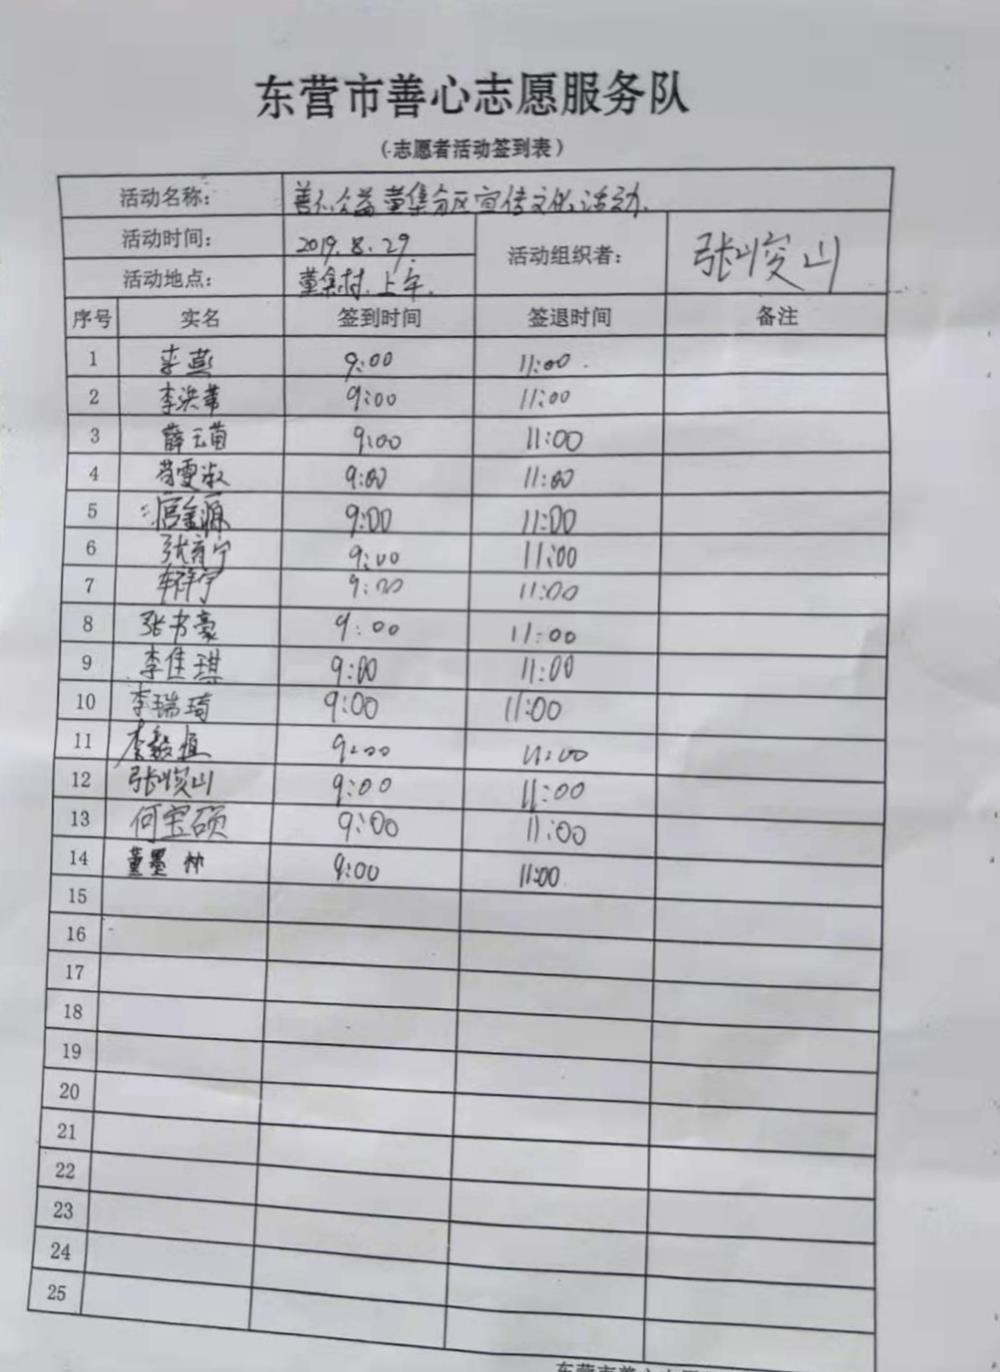 东营市善心志愿服务队
(志愿者活动签到表)
活动名称: 善心公益董集分区宣传文化活动.
活动时间: 2019.8.29. 活动组织者: 张峻山
活动地点: 董集村.上午.
序号 实名 签到时间 签退时间 备注
1 李燕 9:00 11:00
2 李洪苇 9:00 11:00
3 薛云苗 9:00 11:00
4 9:00 11:00
5 9:00 11:00
6 9:00 11:00
7 9:00 11:00
8 张书豪 9:00 11:00
9 李佳琪 9:00 11:00
10 李瑞琦 9:00 11:00
11 李毅恒 9:00 11:00
12 张峻山 9:00 11:00
13 何宝硕 9:00 11:00
14 董墨林 9:00 11:00
15
16
17
18
19
20
21
22
23
24
25